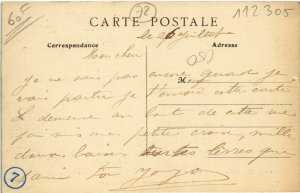 60F
78
112305
CARTE POSTALE
Correspondance
Adresse
le 26 Juillet
(08)
Mon cher
M
je ne sais pas encore quand je
vais partir je t'envoie cette carte
Je demeure au bout de cette rue
j'ai mis une petite croix, mille
doux baisers toutes
ton Jojo
7